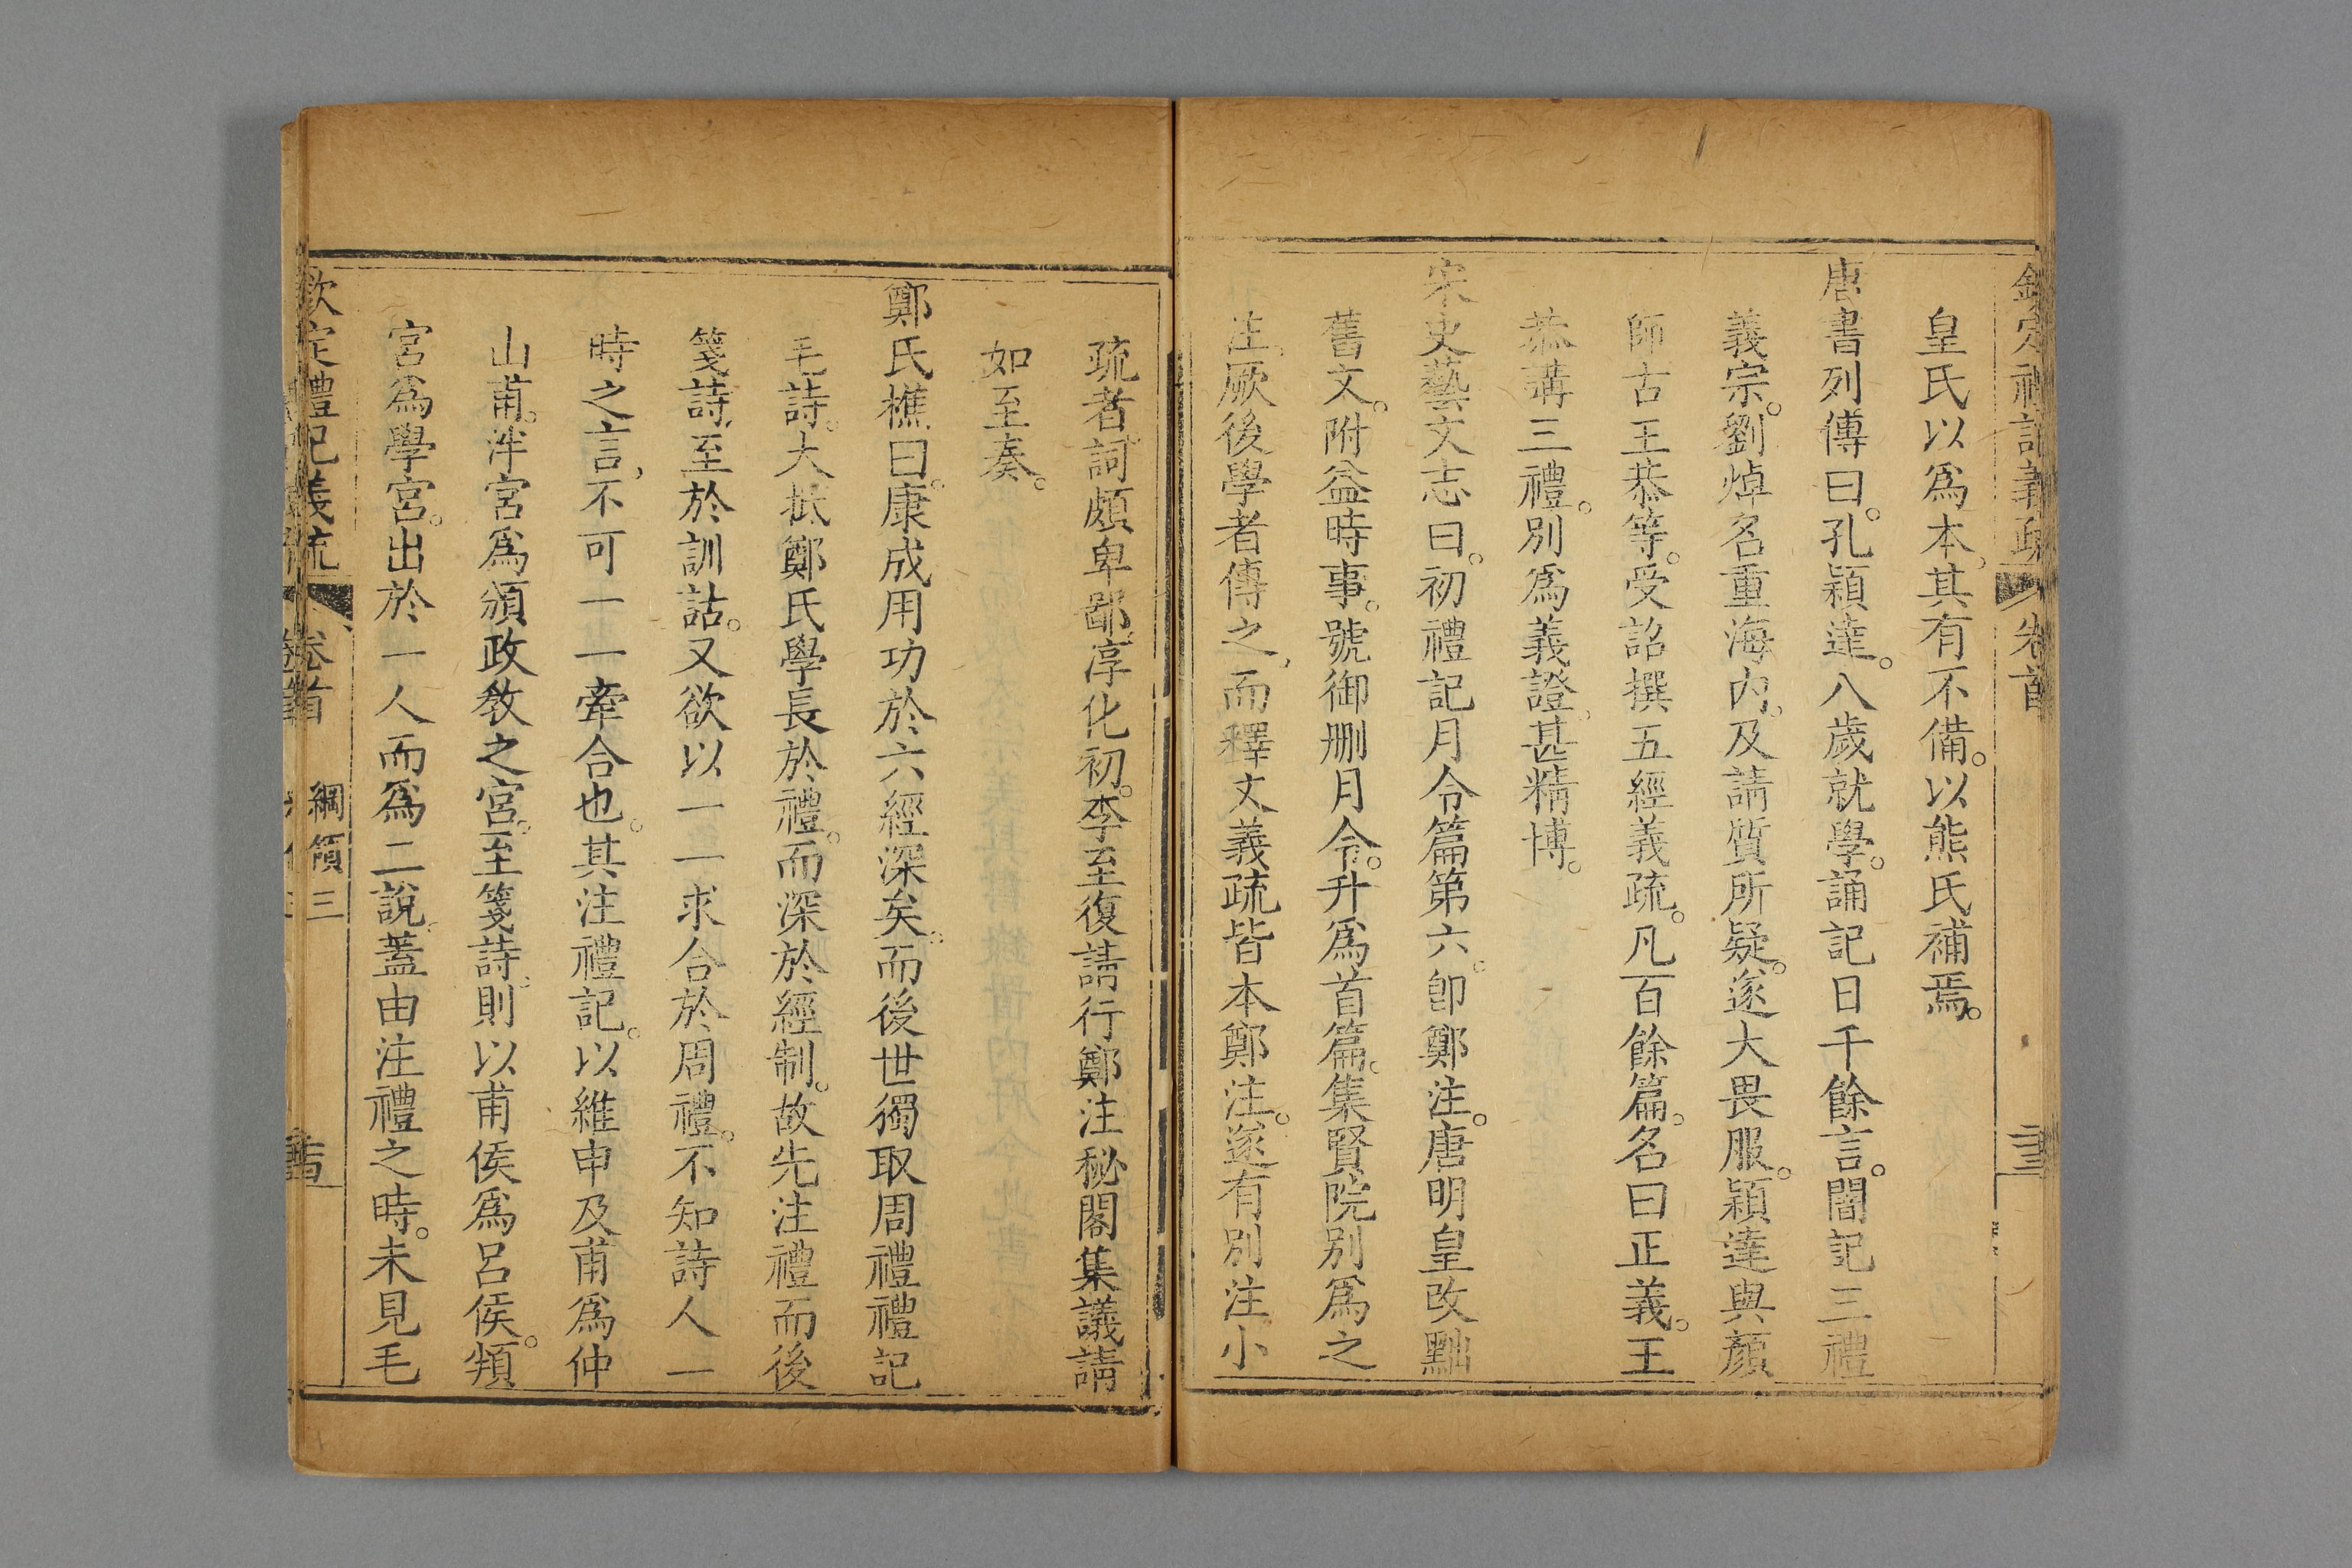 欽定禮記義疏 卷首
皇氏以爲本其有不備。以熊氏補焉。
唐書列傳曰。孔穎達。八歲就學。誦記日千餘言。闇記三禮
義宗。劉焯名重海內。及請質所疑。遂大畏服。穎達與顏
師古王恭等。受詔撰五經義疏。凡百餘篇。名曰正義。王
恭講三禮。別爲義證。甚精博。
宋史藝文志曰。初禮記月令篇第六。卽鄭注。唐明皇改黜
舊文。附益時事。號御刪月令。升爲首篇。集賢院別爲之
注。厥後學者傳之、而釋文義疏皆本鄭注。遂有別注小
疏者。詞頗卑鄙。淳化初。李至復請行鄭注秘閣集議請
如至奏。
鄭氏樵曰。康成用功於六經深矣。而後世獨取周禮禮記
毛詩。大抵鄭氏學長於禮。而深於經制。故先注禮而後
箋詩。至於訓詁。又欲以一一求合於周禮。不知詩人一
時之言、不可一一牽合也。其注禮記。以維申及甫爲仲
山甫。泮宮爲頒政敎之宮。至箋詩。則以甫侯爲呂侯。頖
宮爲學宮。出於一人而爲二說。蓋由注禮之時。未見毛
欽定禮記義疏 卷首 綱領三